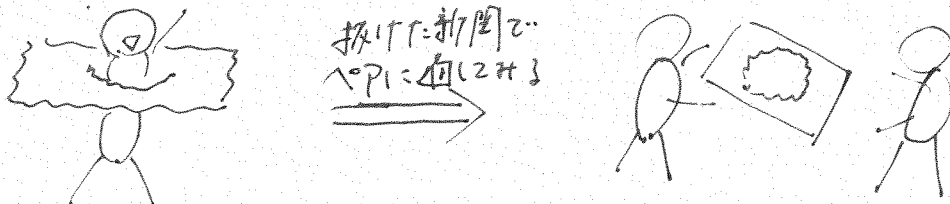 抜けた新聞で
ペアに向してみる